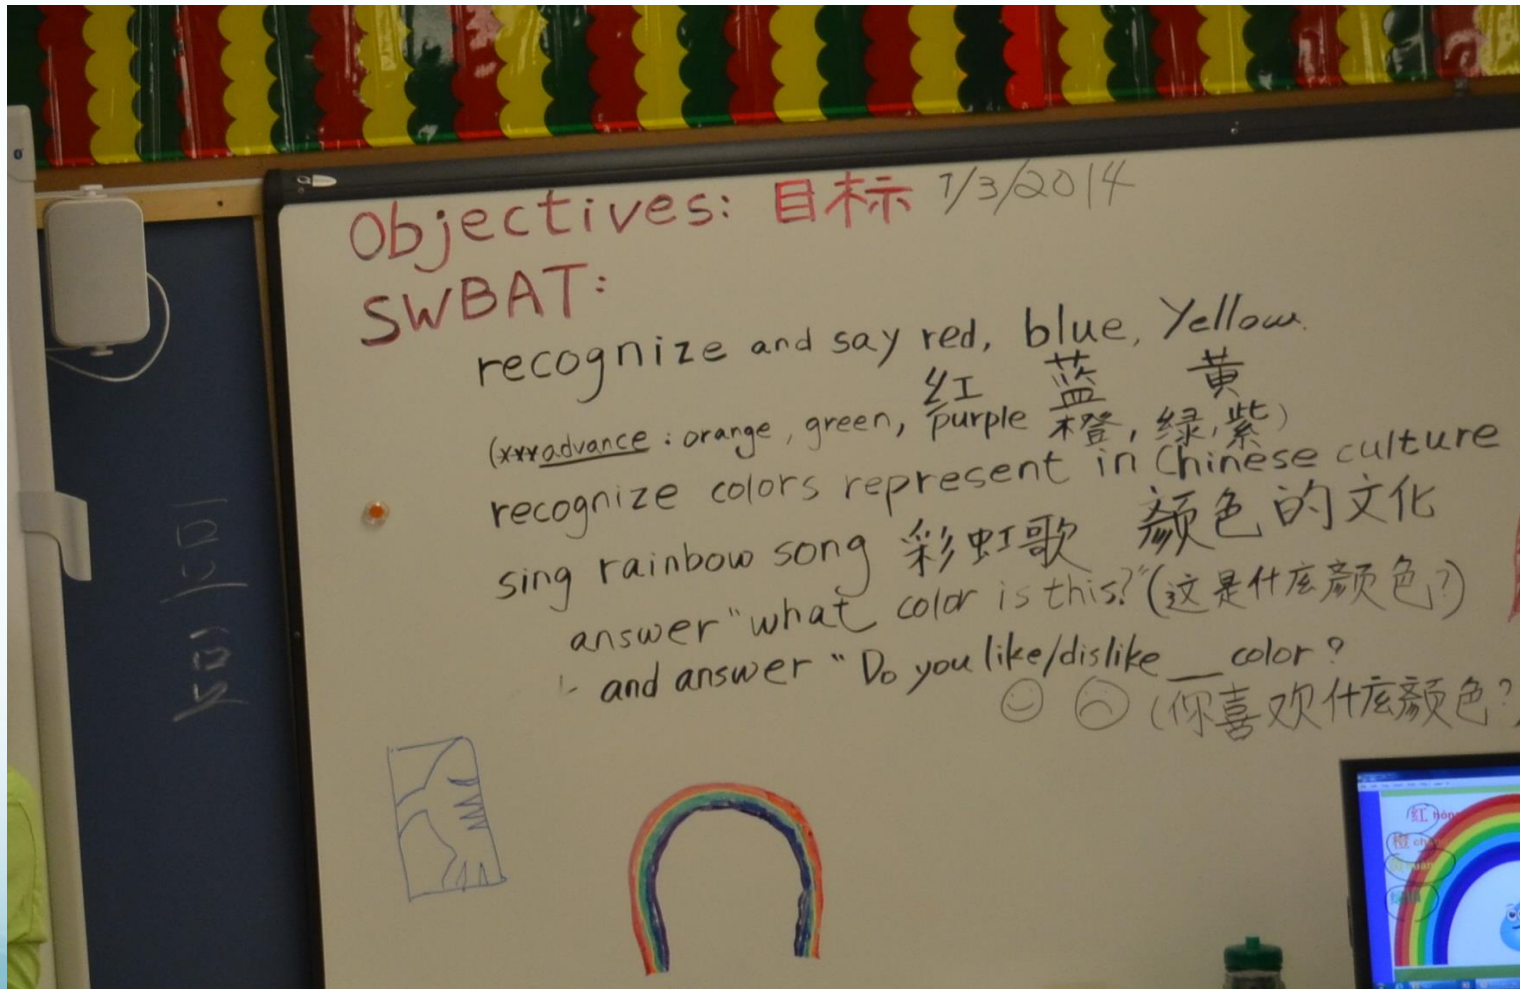 Objectives: 目标 7/3/2014
SWBAT:
recognize and say red, blue, Yellow.
红 蓝 黄
(***advance: orange, green, purple 橙, 绿, 紫)
recognize colors represent in Chinese culture
颜色的文化
sing rainbow song 彩虹歌
answer "what color is this?" (这是什底颜色?)
and answer "Do you like/dislike __ color?
(你喜欢什底颜色?)
豆
豆
红 hóng
橙